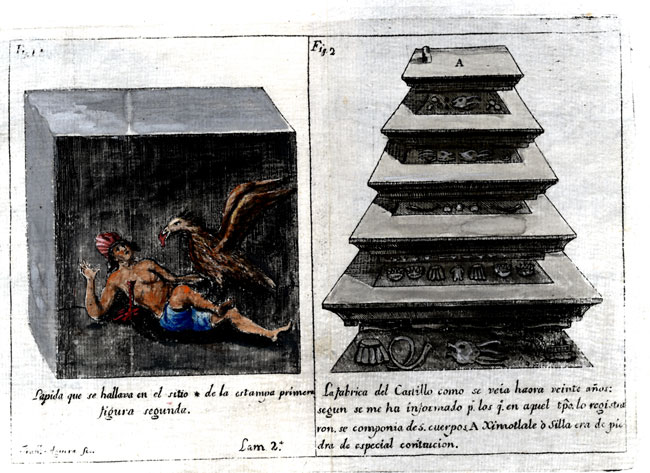 Fig. 1.
Fig. 2
A
Lapida que se hallava en el sitio * de la estampa primera
figura segunda.
Lam 2.ª
La fabrica del Castillo como se veia haora veinte años:
segun se me ha informado p.r los q.e en aquel tpo. lo registra
ron, se componia de 5. cuerpos, A Ximotlale ò Silla era de pie
dra de especial contrucion.
Aguera